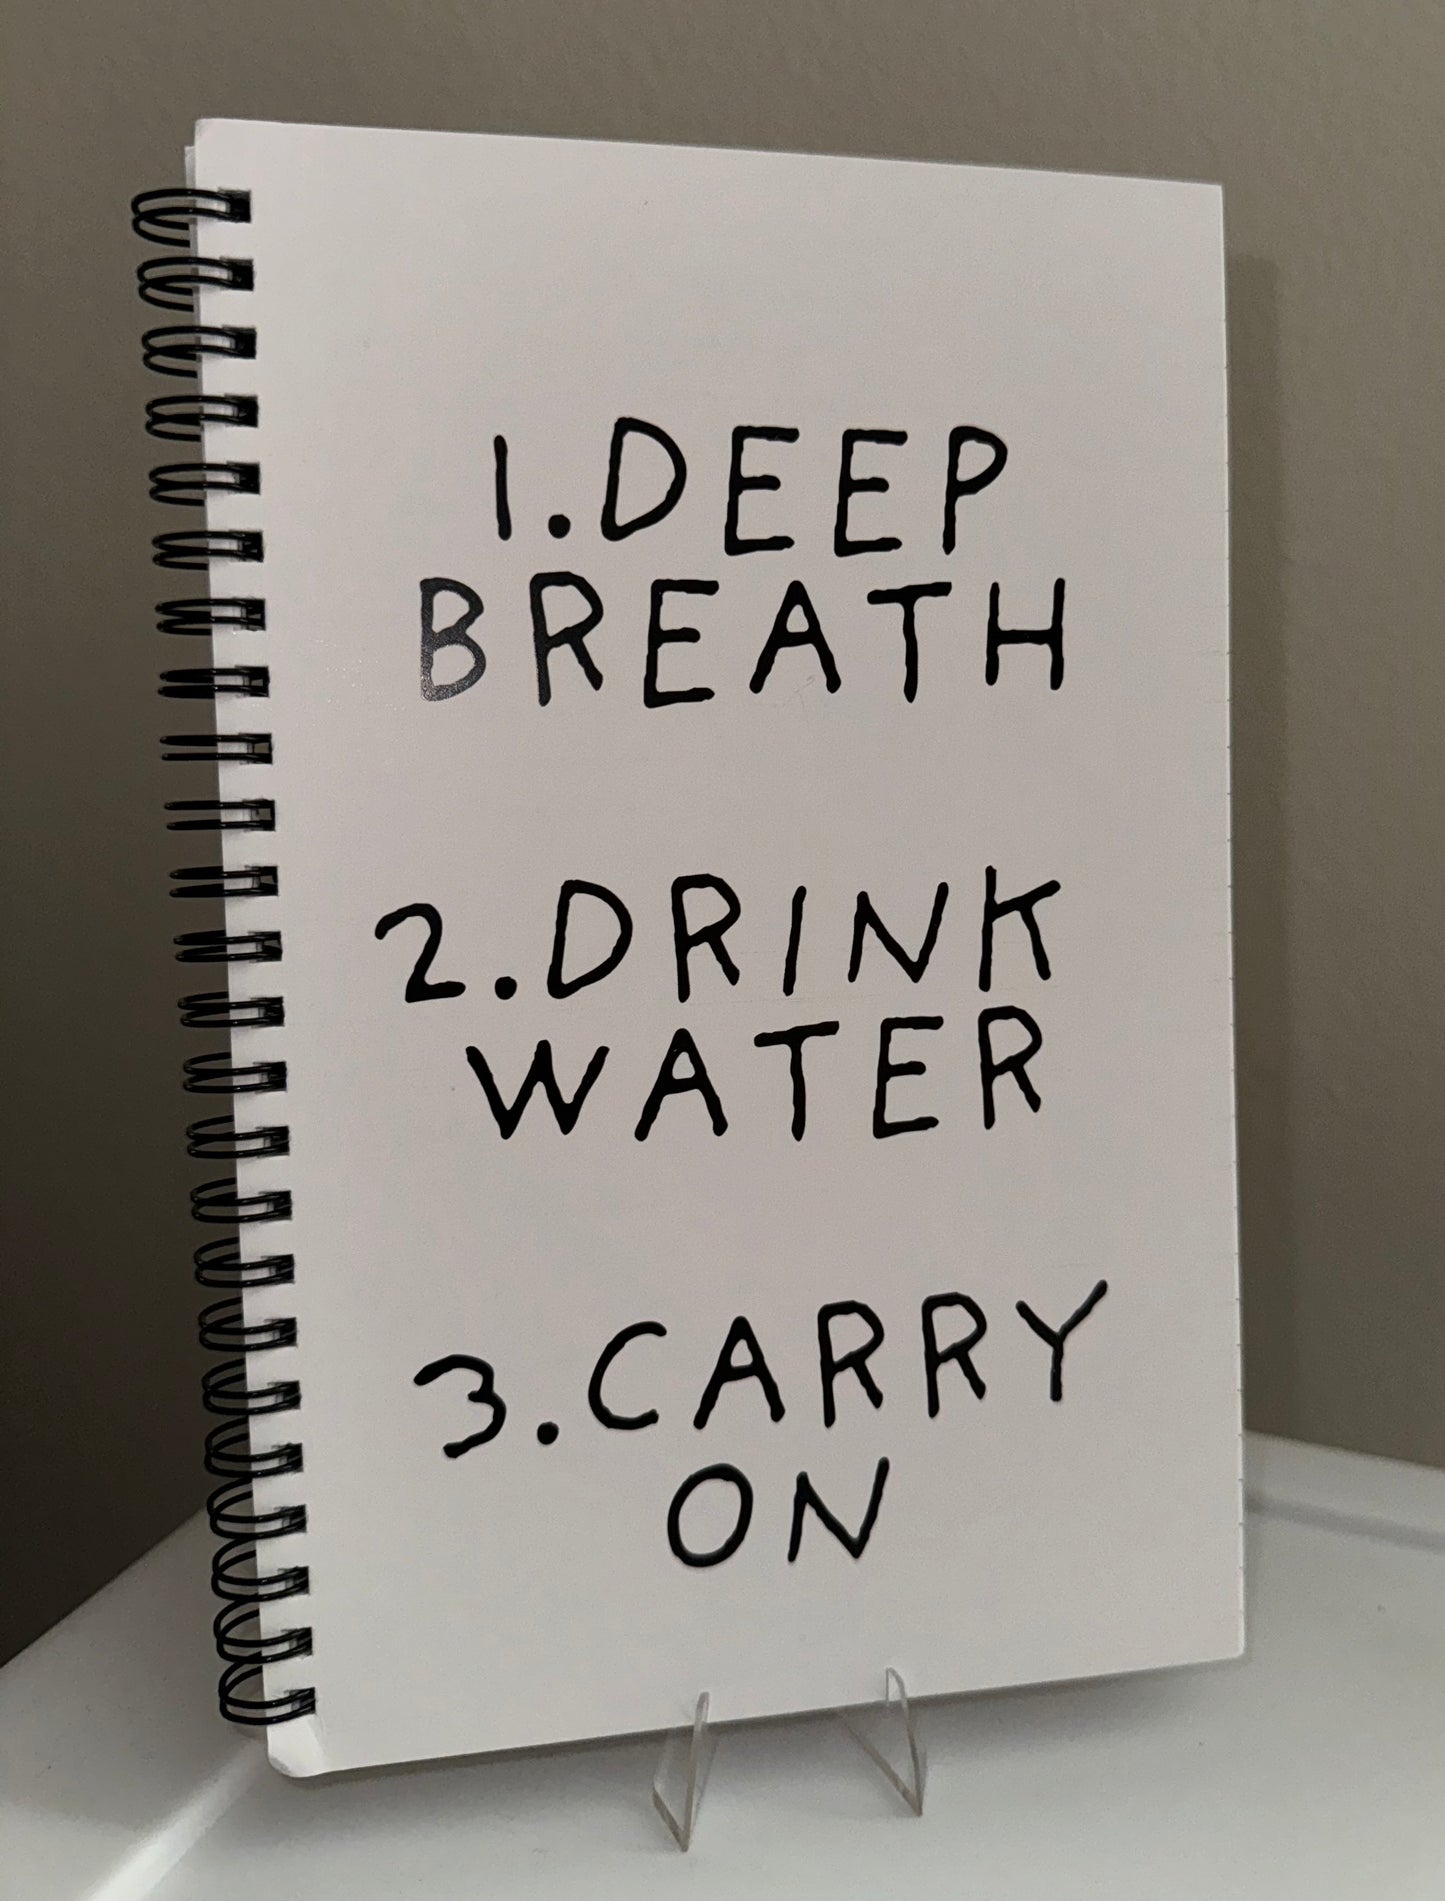 1.DEEP
BREATH
2.DRINK
WATER
3.CARRY
ON